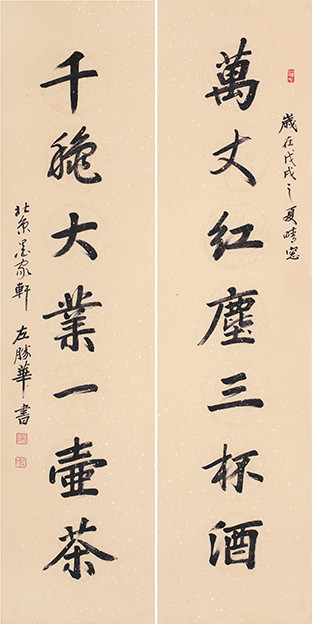 歲在戊戌之夏晴窓
萬丈紅塵三杯酒
千穐大業一壺茶
北京墨家軒 左勝華書